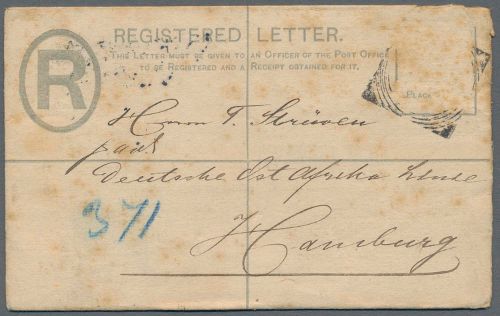 REGISTERED LETTER.
THIS LETTER MUST BE GIVEN TO AN OFFICER OF THE POST OFFICE
TO BE REGISTERED AND A RECEIPT OBTAINED FOR IT.
R
PLACE
Herrn T. Strüven
Deutsche Ost Afrika Linie
371
Hamburg